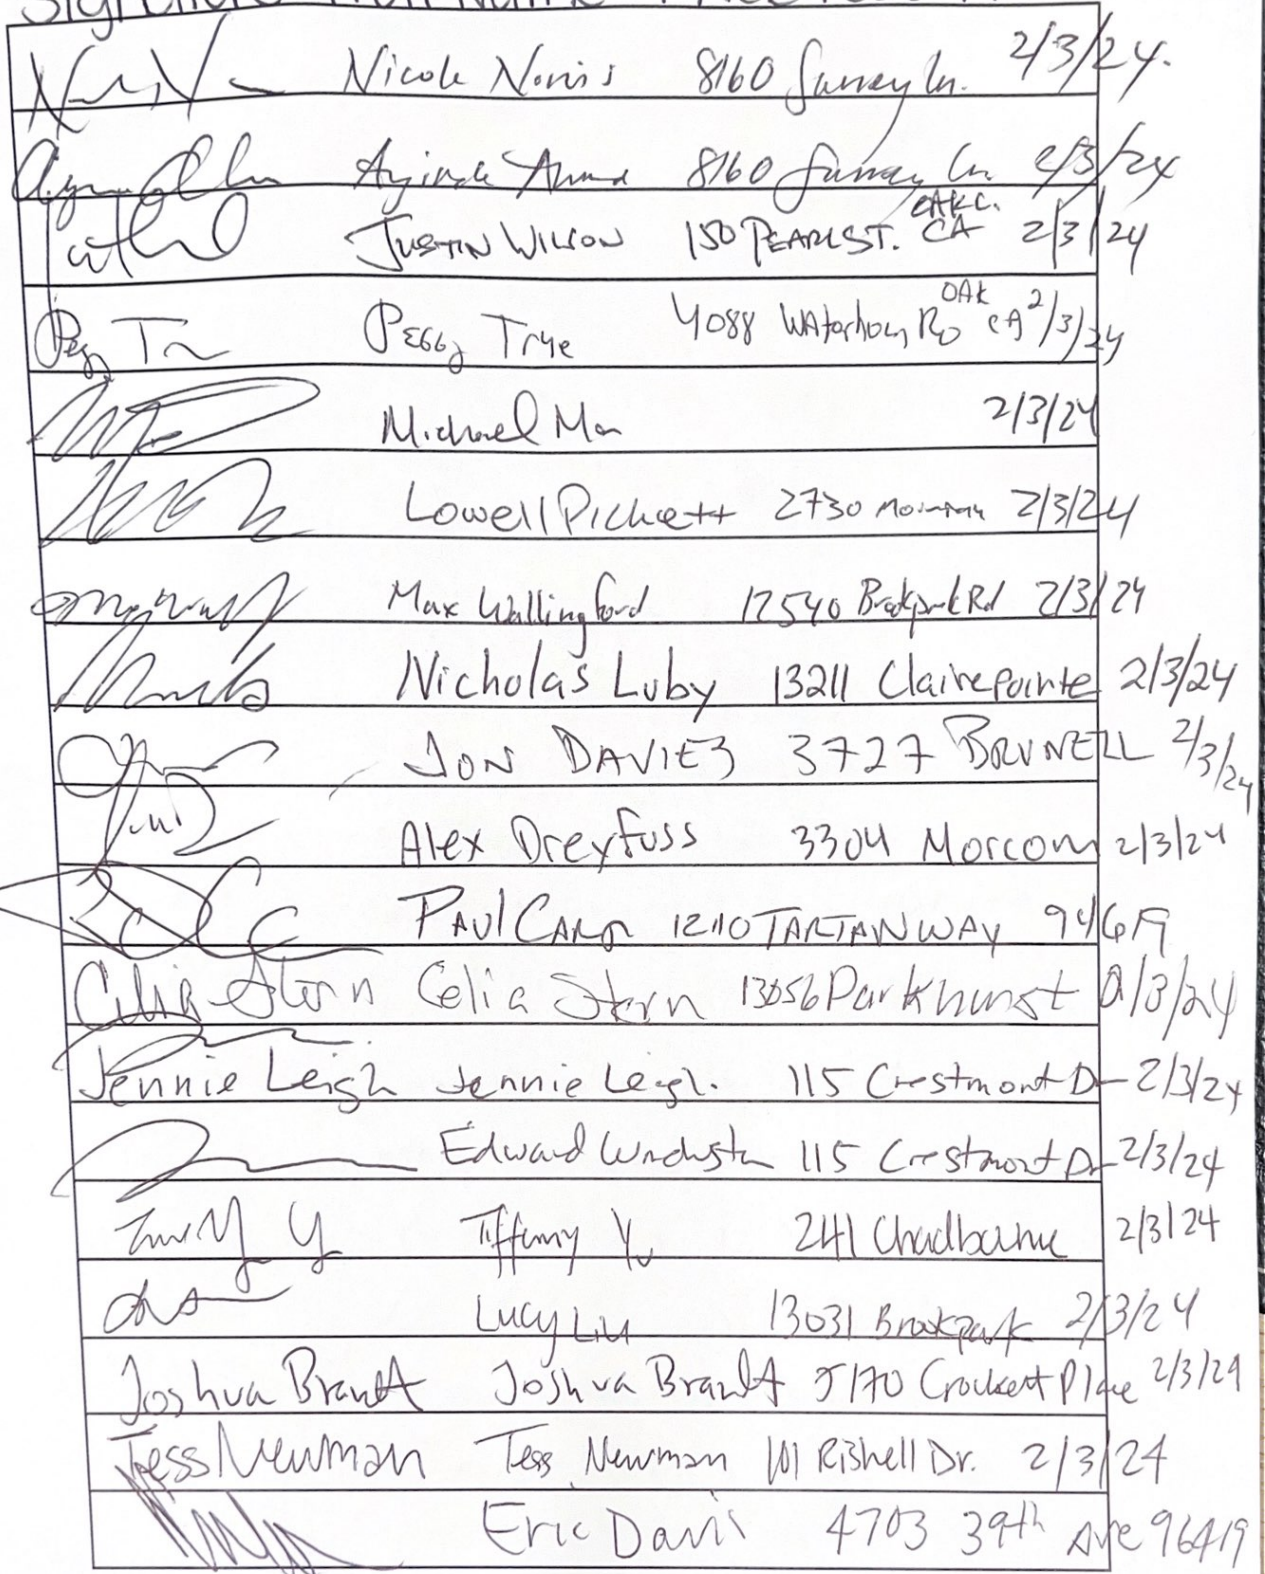 Signature Print Name Address
Nicole Norris 8160 Surrey Ln. 2/3/24.
8160 Surrey Ln 2/3/24
JUSTIN WILSON 150 PEARL ST. OAK. CA 2/3/24
Peggy Trye 4088 Waterhouse RD OAK CA 2/3/24
Michael Ma 2/3/24
Lowell Pickett 2730 2/3/24
Max Wallingford 12540 Brookpark Rd 2/3/24
Nicholas Luby 13211 Clairepointe 2/3/24
JON DAVIES 3727 BRUNELL 2/3/24
Alex Dreyfuss 3304 Morcom 2/3/24
PAUL 12110 TARTAN WAY 94619
Celia Stern Celia Stern 13056 Parkhurst 2/3/24
Jennie Leigh Jennie Leigh 115 Crestmont Dr 2/3/24
Edward 115 Crestmont Dr 2/3/24
Tiffany Yu 241 Chadbourne 2/3/24
Lucy Liu 13031 Brookpark 2/3/24
Joshua Brandt Joshua Brandt 5170 Crockett Place 2/3/24
Tess Newman Tess Newman 101 Rishell Dr. 2/3/24
Eric Davis 4703 39th Ave 96419